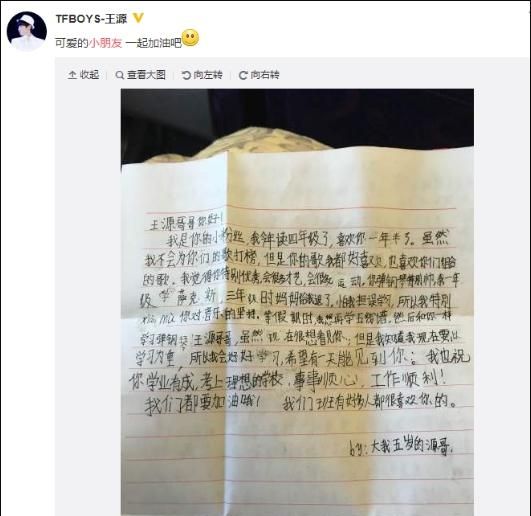 TFBOYS-王源
可爱的小朋友 一起加油吧
收起 查看大图 向左转 向右转
王源哥哥你好！
我是你的小粉丝，我今年读四年级了，喜欢你一年半了。虽然
我不会为你们的歌打榜，但是你的歌我都好喜欢，也喜欢你们组合
的歌。我觉得你特别优秀，会很多才艺，会很多运动。你弹钢琴特别帅，我一年
级学萨克斯，三年级时妈妈给我退了，怕我担误学习，所以我特别
你对音乐的坚持，寒假我想去学五线谱，然后和你一样
学习弹钢琴！王源哥哥，虽然现在很想看见你，但是我知道我现在要以
学习为重，所以我会好好学习，希望有一天能见到你；我也祝
你学业有成，考上理想的学校，事事顺心，工作顺利！
我们都要加油哦！ 我们班有好多人都很喜欢你的。
by：大我五岁的源哥